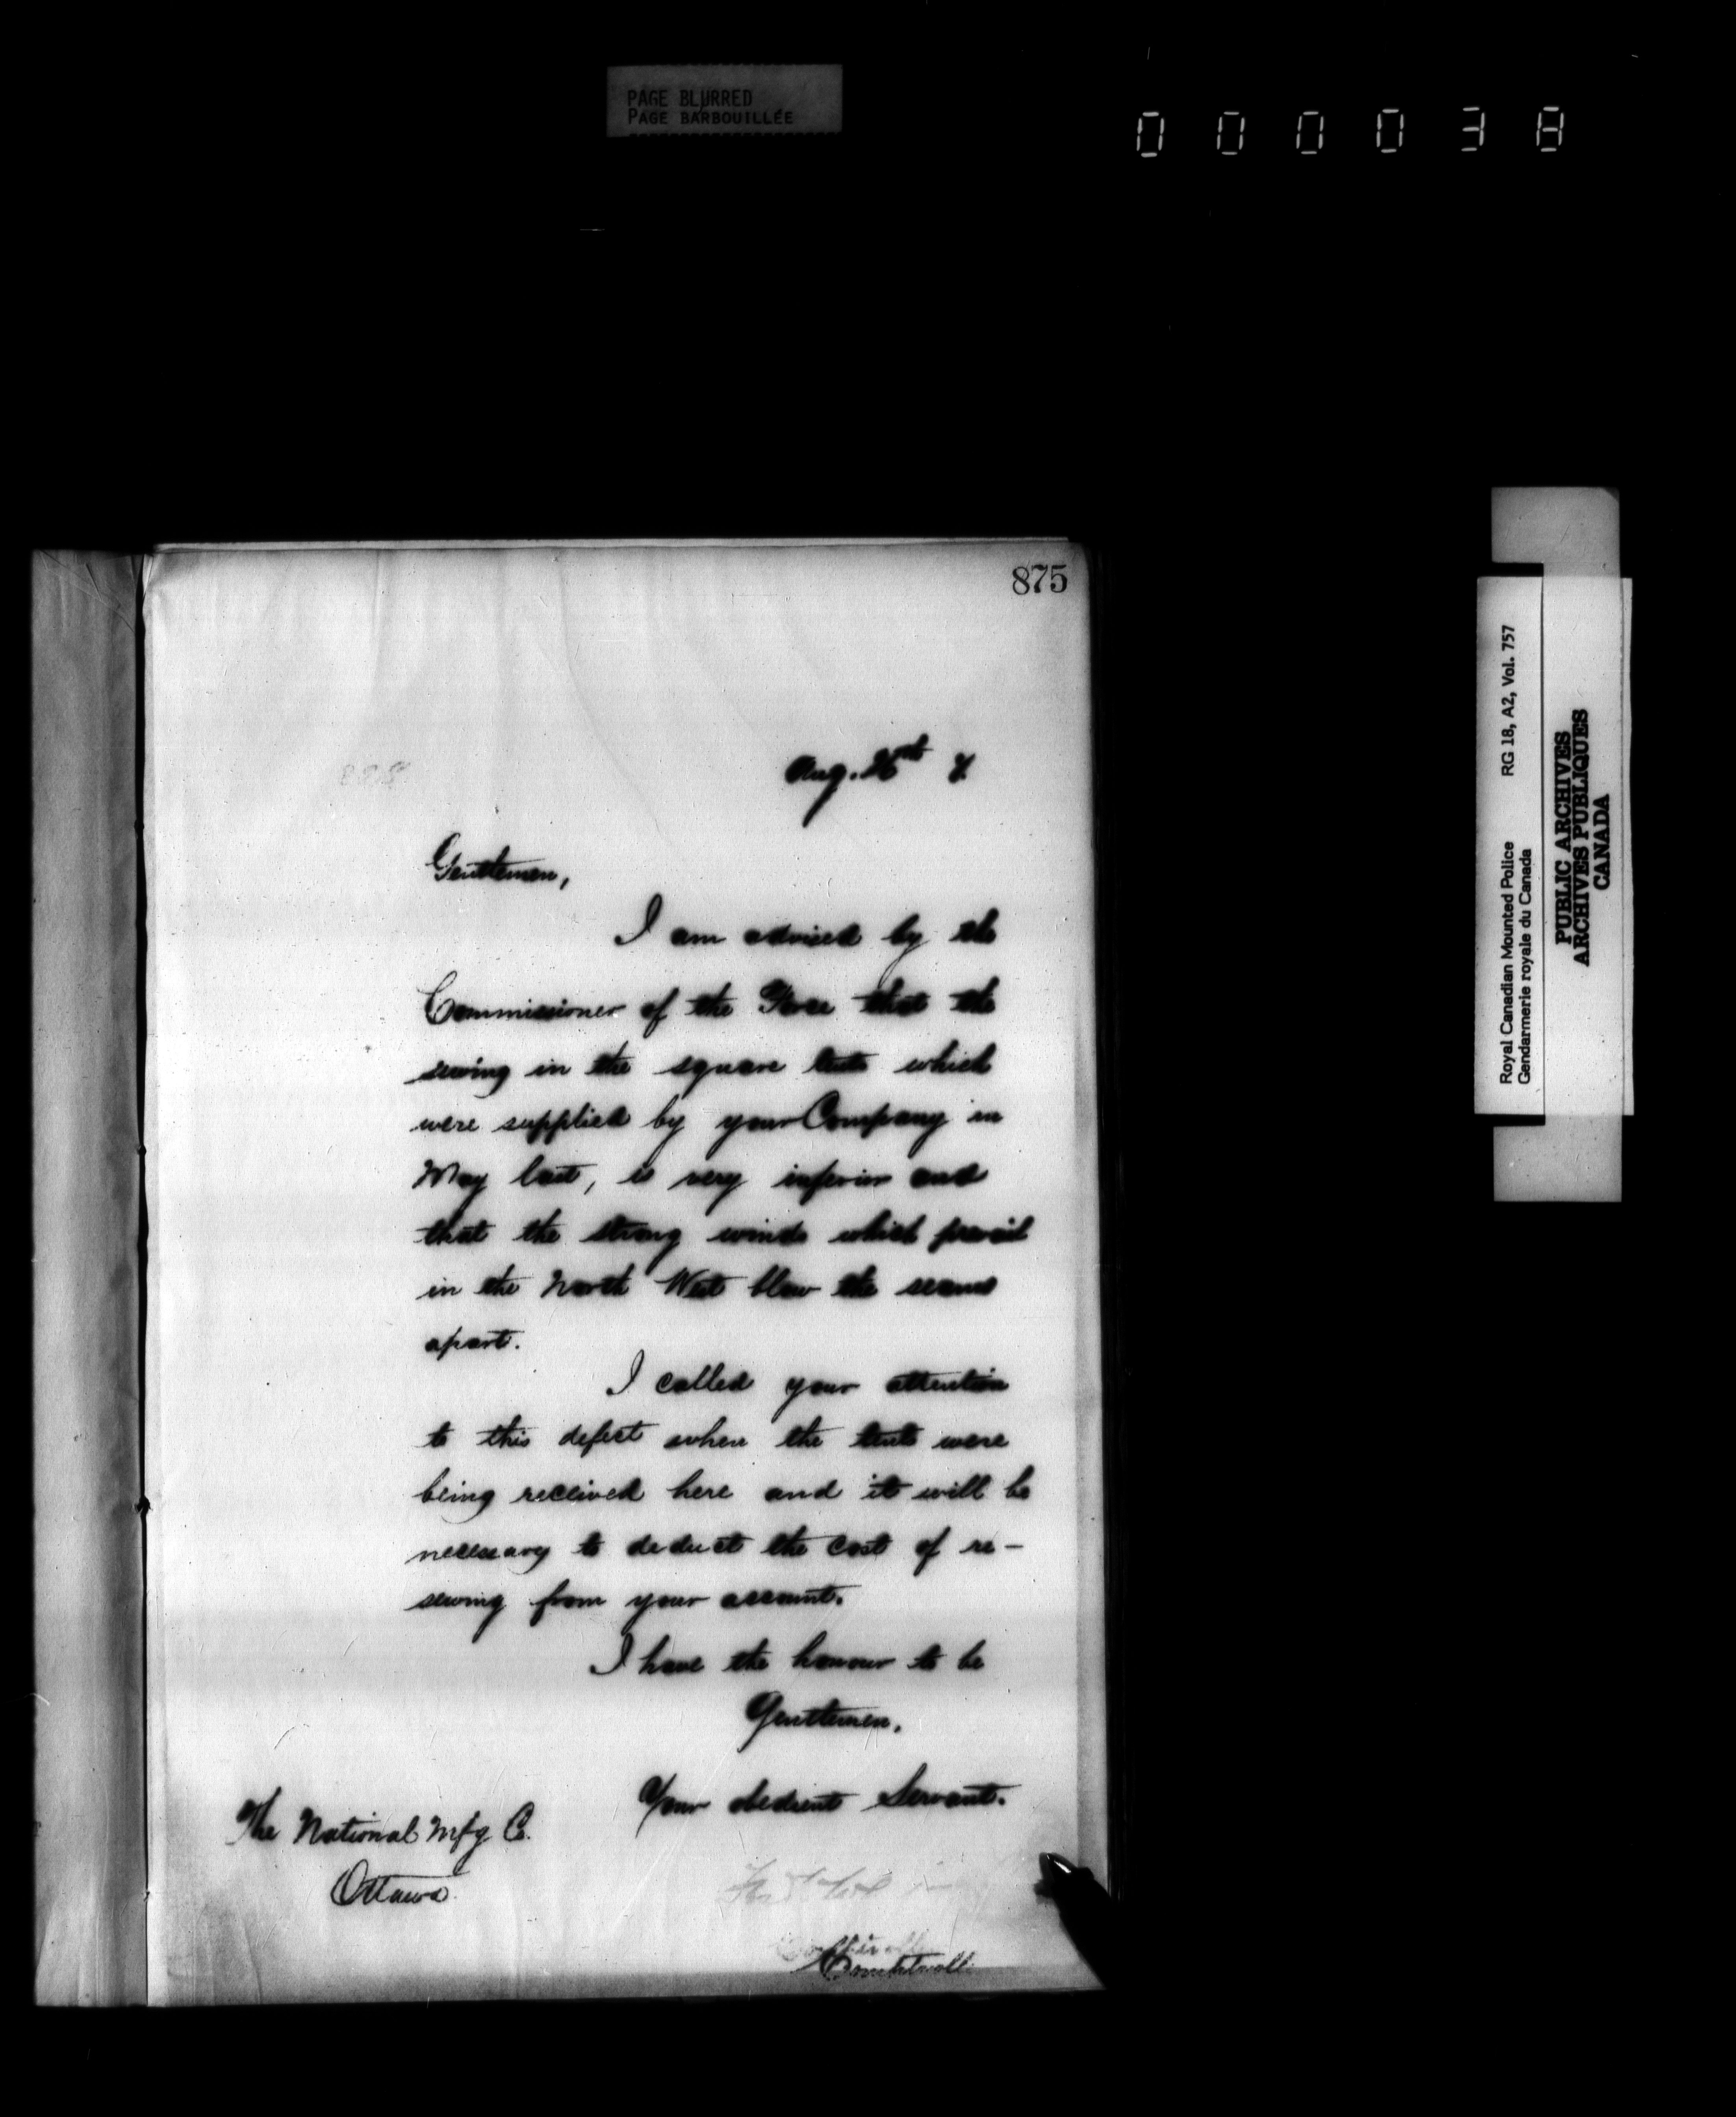 PAGE BLURRED
PAGE BARBOUILLÉE
000038
875
Aug. 26th 7.
Gentlemen,
I am advised by the
Commissioner of the Force that the
sewing in the square tents which
were supplied by your Company in
May last, is very inferior and
that the strong winds which prevail
in the North West blow the seams
apart.
I called your attention
to this defect when the tents were
being received here and it will be
necessary to deduct the cost of re-
sewing from your account.
I have the honour to be
Gentlemen,
Your obedient Servant.
The National Mfg Co.
Ottawa
Royal Canadian Mounted Police RG 18, A2, Vol. 757
Gendarmerie royale du Canada
PUBLIC ARCHIVES
ARCHIVES PUBLIQUES
CANADA